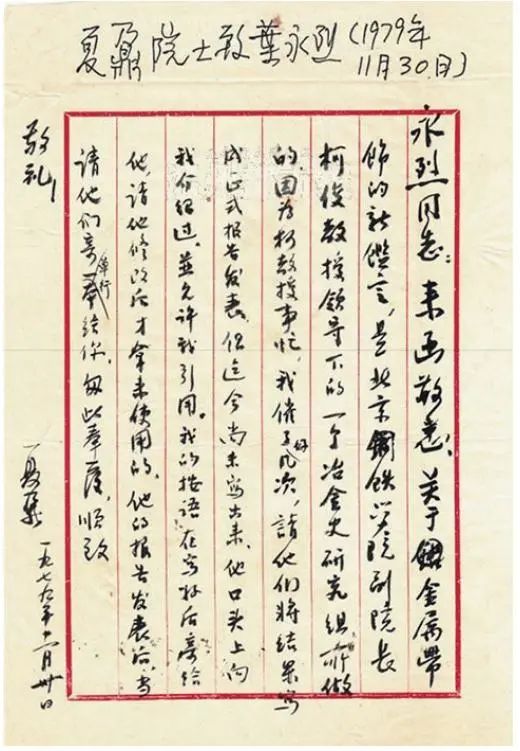 夏鼐院士致葉永烈(1979年
11月30日)
永烈同志：来函敬悉，关于铝金属带
饰的新鉴定，是北京鋼铁学院副院长
柯俊教授领导下的一个冶金史研究组所做
的，因为柯教授事忙，我催了好几次，请他们将结果写
成正式报告发表，但迄今尚未写出来。他口头上向
我介绍过，並允许我引用。我的按语在写好后寄给
他，请他修改后才拿来使用的。他的报告发表后，当
请他们寄单行本给你。匆此奉覆，顺致
敬礼！
夏鼐 一九七九年十一月卅日